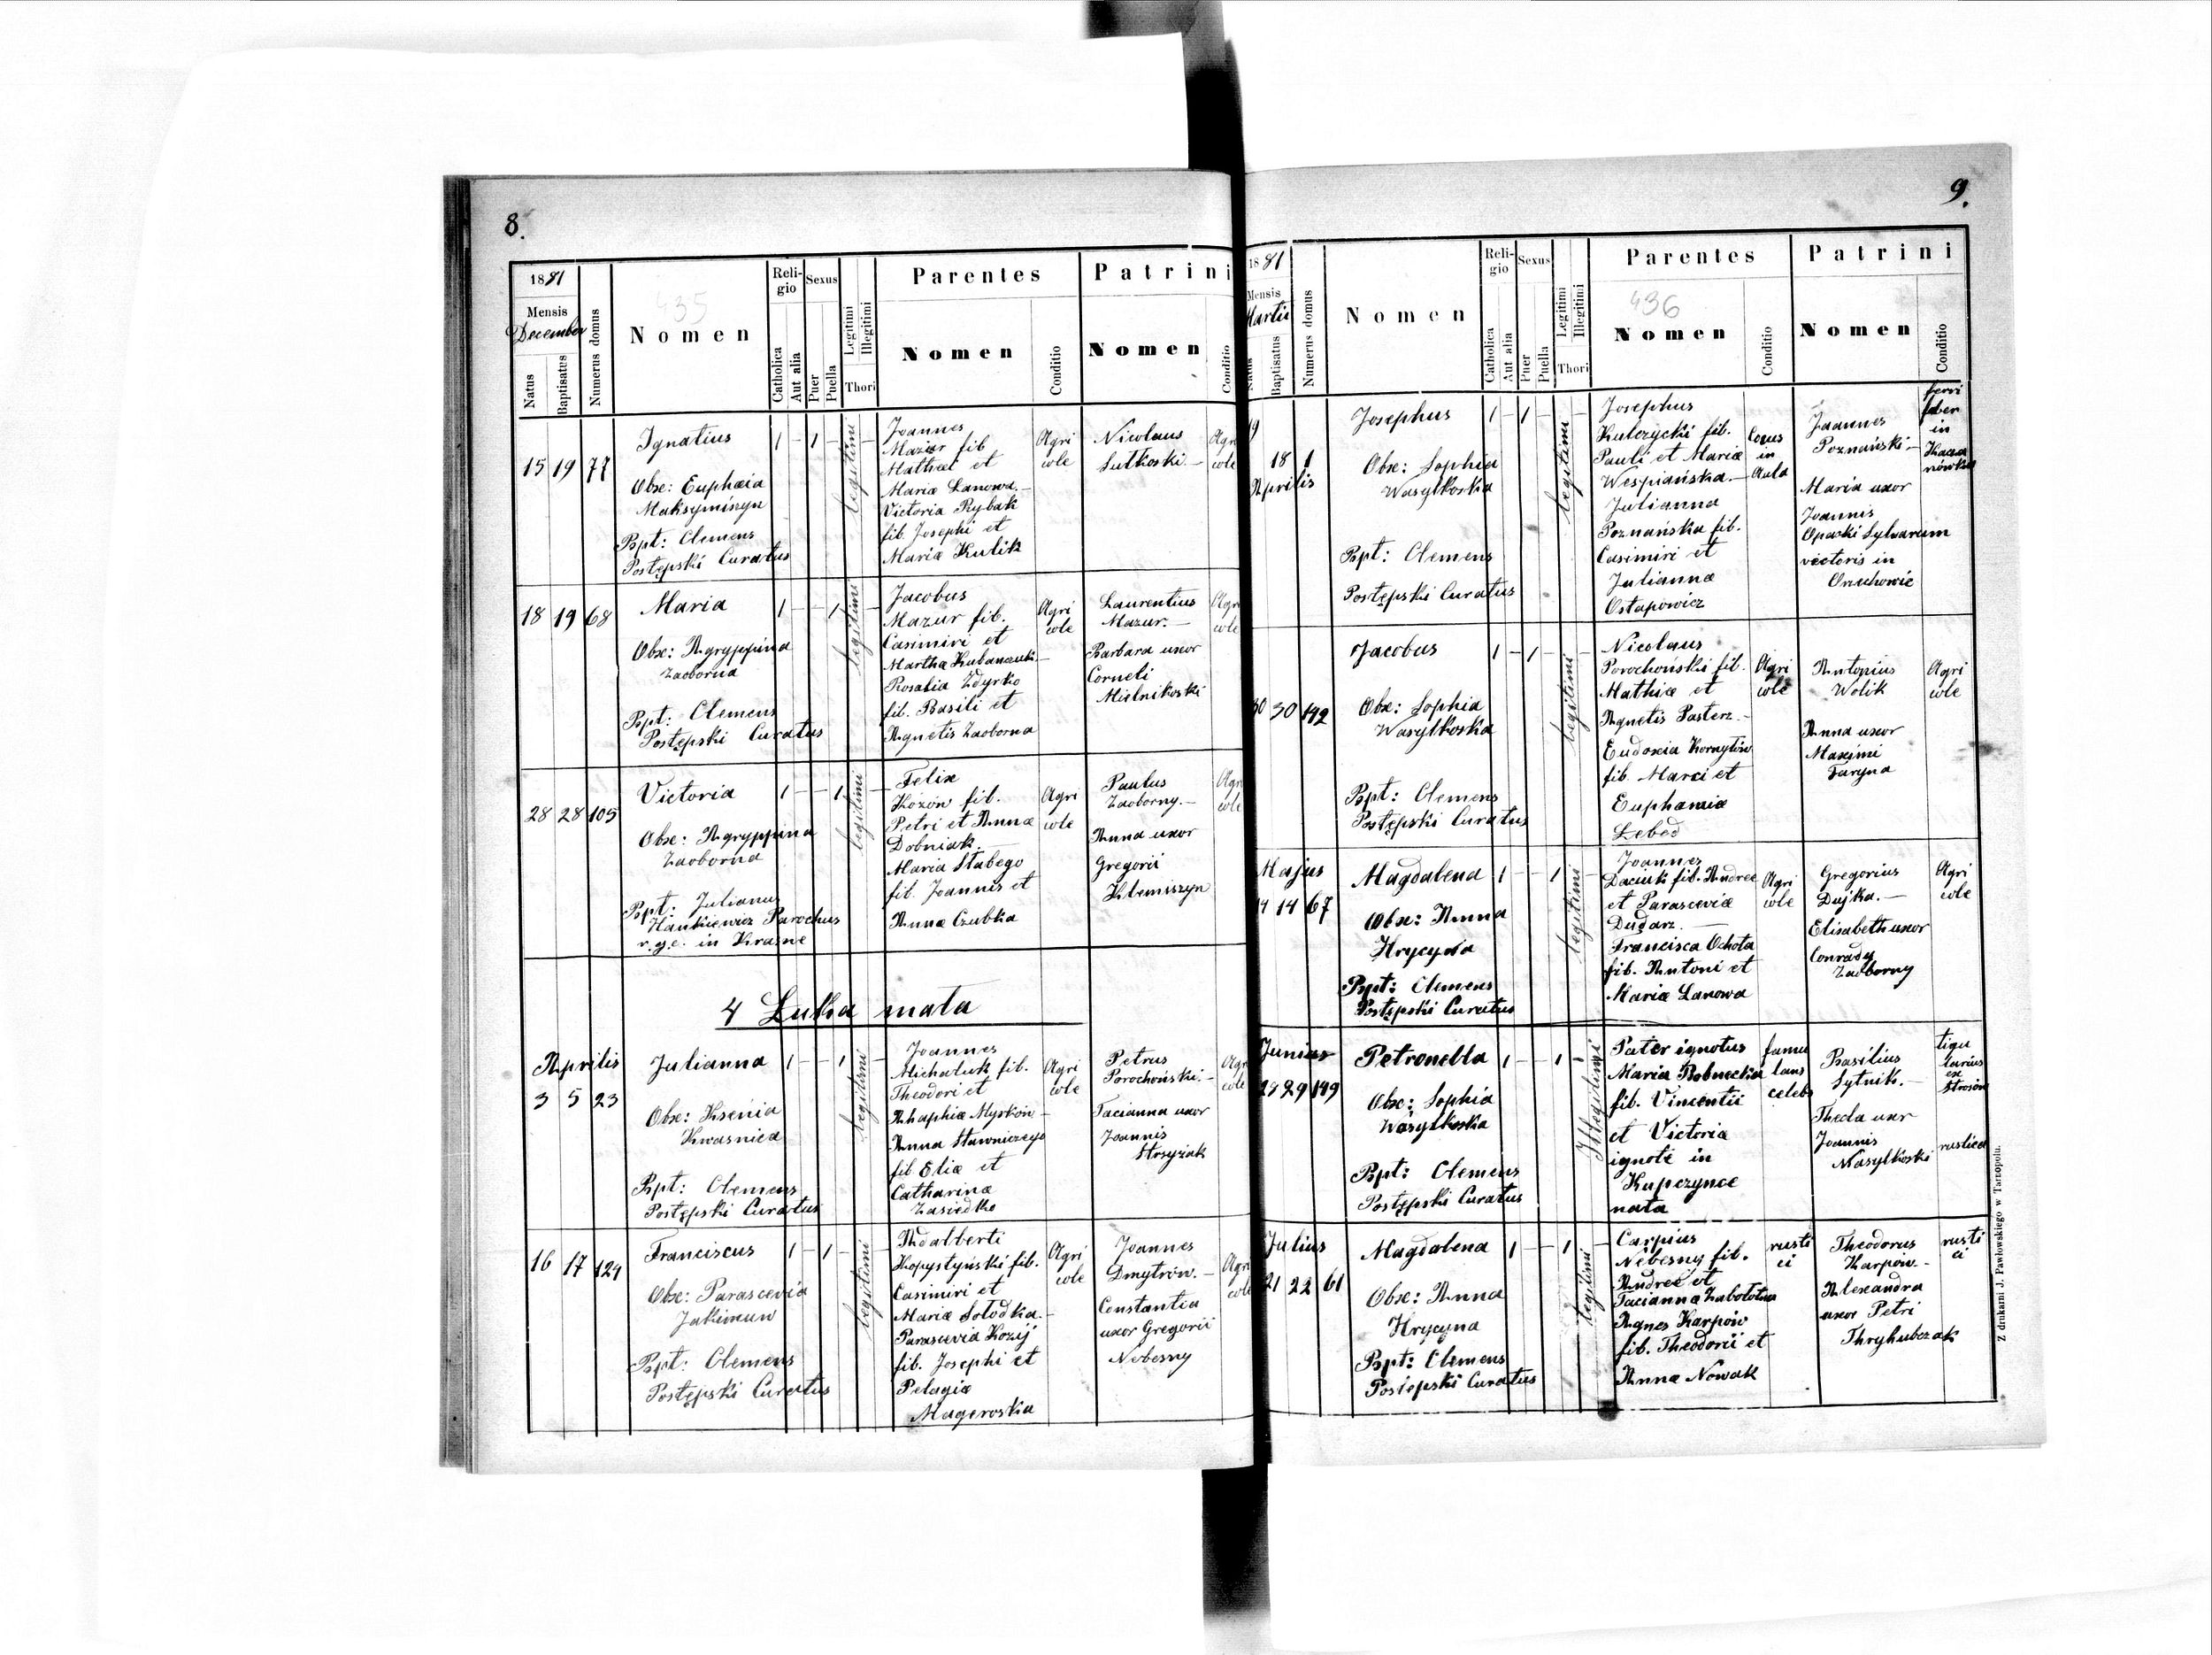 8.
1881
Mensis
December
Natus
Baptisatus
Numerus domus
435
Nomen
Religio
Catholica
Aut alia
Sexus
Puer
Puella
Legitimi
Illegitimi
Thori
Parentes
Nomen
Conditio
Patrini
Nomen
Conditio
15 19 77
Ignatius
Obse: Euphæia
Maksymiszyn
Bpt: Clemens
Postępski Curatus
1 - 1 - -
legitimi
Joannes
Mazur fib
Mathæi et
Mariæ Lanowa.-
Victoria Rybak
fib. Josephi et
Mariæ Kulik
Agri
colæ
Nicolaus
Sutkoski.-
Agri
colæ
18 19 68
Maria
Obse: Agryppina
Zaoborna
Bpt: Clemens
Postępski Curatus
1 - - 1 -
legitimi
Jacobus
Mazur fib.
Casimiri et
Martha
Rosalia Zdyrko
fib. Basili et
Agnetis Zaoborna
Agri
colæ
Laurentius
Mazur.-
Barbara uxor
Corneli
Mielnikoski
Agri
colæ
28 28 105
Victoria
Obse: Agryppina
Zaoborna
Bpt: Julianus
Hankiewicz Parochus
r.g.c. in Krasne
1 - - 1 -
legitimi
Felix
Kozon fib.
Petri et Annæ
Dobniak.
Maria Słabego
fib. Joannis et
Annæ Czubka
Agri
colæ
Paulus
Zaoborny.-
Anna uxor
Gregorii
Klemiszyn
Agri
colæ
4 Łuka mała
Aprilis
3 5 23
Julianna
Obse: Ksenia
Kwasnica
Bpt: Clemens
Postępski Curatus
1 - - 1 -
legitimi
Joannes
Michaluk fib.
Theodori et
Ahaphiæ Myrkon-
Anna Sławniczego
fib Eliæ et
Catharinæ
Zasiedko
Agri
colæ
Petrus
Porochoński.-
Tacianna uxor
Joannis
Agri
colæ
16 17 124
Franciscus
Obse: Parascevia
Jakimuw
Bpt: Clemens
Postępski Curatus
1 - 1 - -
legitimi
Adalberti
Kopystyński fib.
Casimiri et
Mariæ Sołodka.-
Parascevia Kozij
fib. Josephi et
Pelagiæ
Mageroska
Agri
colæ
Joannes
Dmytrów.-
Constantia
uxor Gregorii
Nebesny
Agri
colæ
9.
1881
Mensis
Martii
Natus
Baptisatus
Numerus domus
Nomen
Religio
Catholica
Aut alia
Sexus
Puer
Puella
Legitimi
Illegitimi
Thori
Parentes
436
Nomen
Conditio
Patrini
Nomen
Conditio
19
18 1
Aprilis
Josephus
Obse: Sophia
Wasylkoska
Bpt: Clemens
Postępski Curatus
1 - 1 - -
legitimi
Josephus
Kulczycki fib.
Pauli et Mariæ
Wespiańska.-
Julianna
Poznańska fib.
Casimiri et
Juliannæ
Ostapowicz
Cocus
in
Aula
Joannes
Poznański-
Maria uxor
Joannis
Opacki Sylvarum
vectoris in
ferri
faber
in
30 30 142
Jacobus
Obse: Sophia
Wasylkoska
Bpt: Clemens
Postępski Curatus
1 - 1 - -
legitimi
Nicolaus
Porochoński fib.
Mathiæ et
Agnetis Pasterz.-
Eudoxia Kornyłow
fib. Marci et
Euphemiæ
Lebed
Agri
colæ
Antonius
Wolik
Anna uxor
Maximi
Faryna
Agri
colæ
Majus
14 14 67
Magdalena
Obse: Anna
Hrycyna
Bpt: Clemens
Postępski Curatus
1 - - 1 -
legitimi
Joannes
Daciuk fib. Andreæ
et Parasceviæ
Dudarz.-
Francisca Ochota
fib. Antoni et
Mariæ Lanowa
Agri
colæ
Gregorius
Dujka.-
Elisabeth uxor
Conrady
Zaoborny
Agri
colæ
Junius
29 29 149
Petronella
Obse: Sophia
Wasylkoska
Bpt: Clemens
Postępski Curatus
1 - - 1
Illegitimi
Pater ignotus
Maria Robnecka
fib. Vincentii
et Victoriæ
ignoti in
Kupczynce
nata
famu
lans
celebs
Basilius
Sytnik.-
Thecla uxr
Joannis
Wasylkoski
figu
larius
ex
rustica
Julius
21 22 61
Magdalena
Obse: Anna
Hrycyna
Bpt: Clemens
Postępski Curatus
1 - - 1 -
legitimi
Carpius
Nebesny fib.
Andreæ et
Taciannæ Zabolotna
Agnes Karpow
fib. Theodorii et
Annæ Nowak
rusti
ci
Theodorus
Karpow.-
Alexandra
uxor Petri
Thryhubczak
rusti
ci
Z drukarni J. Pawłowskiego w Tarnopolu.